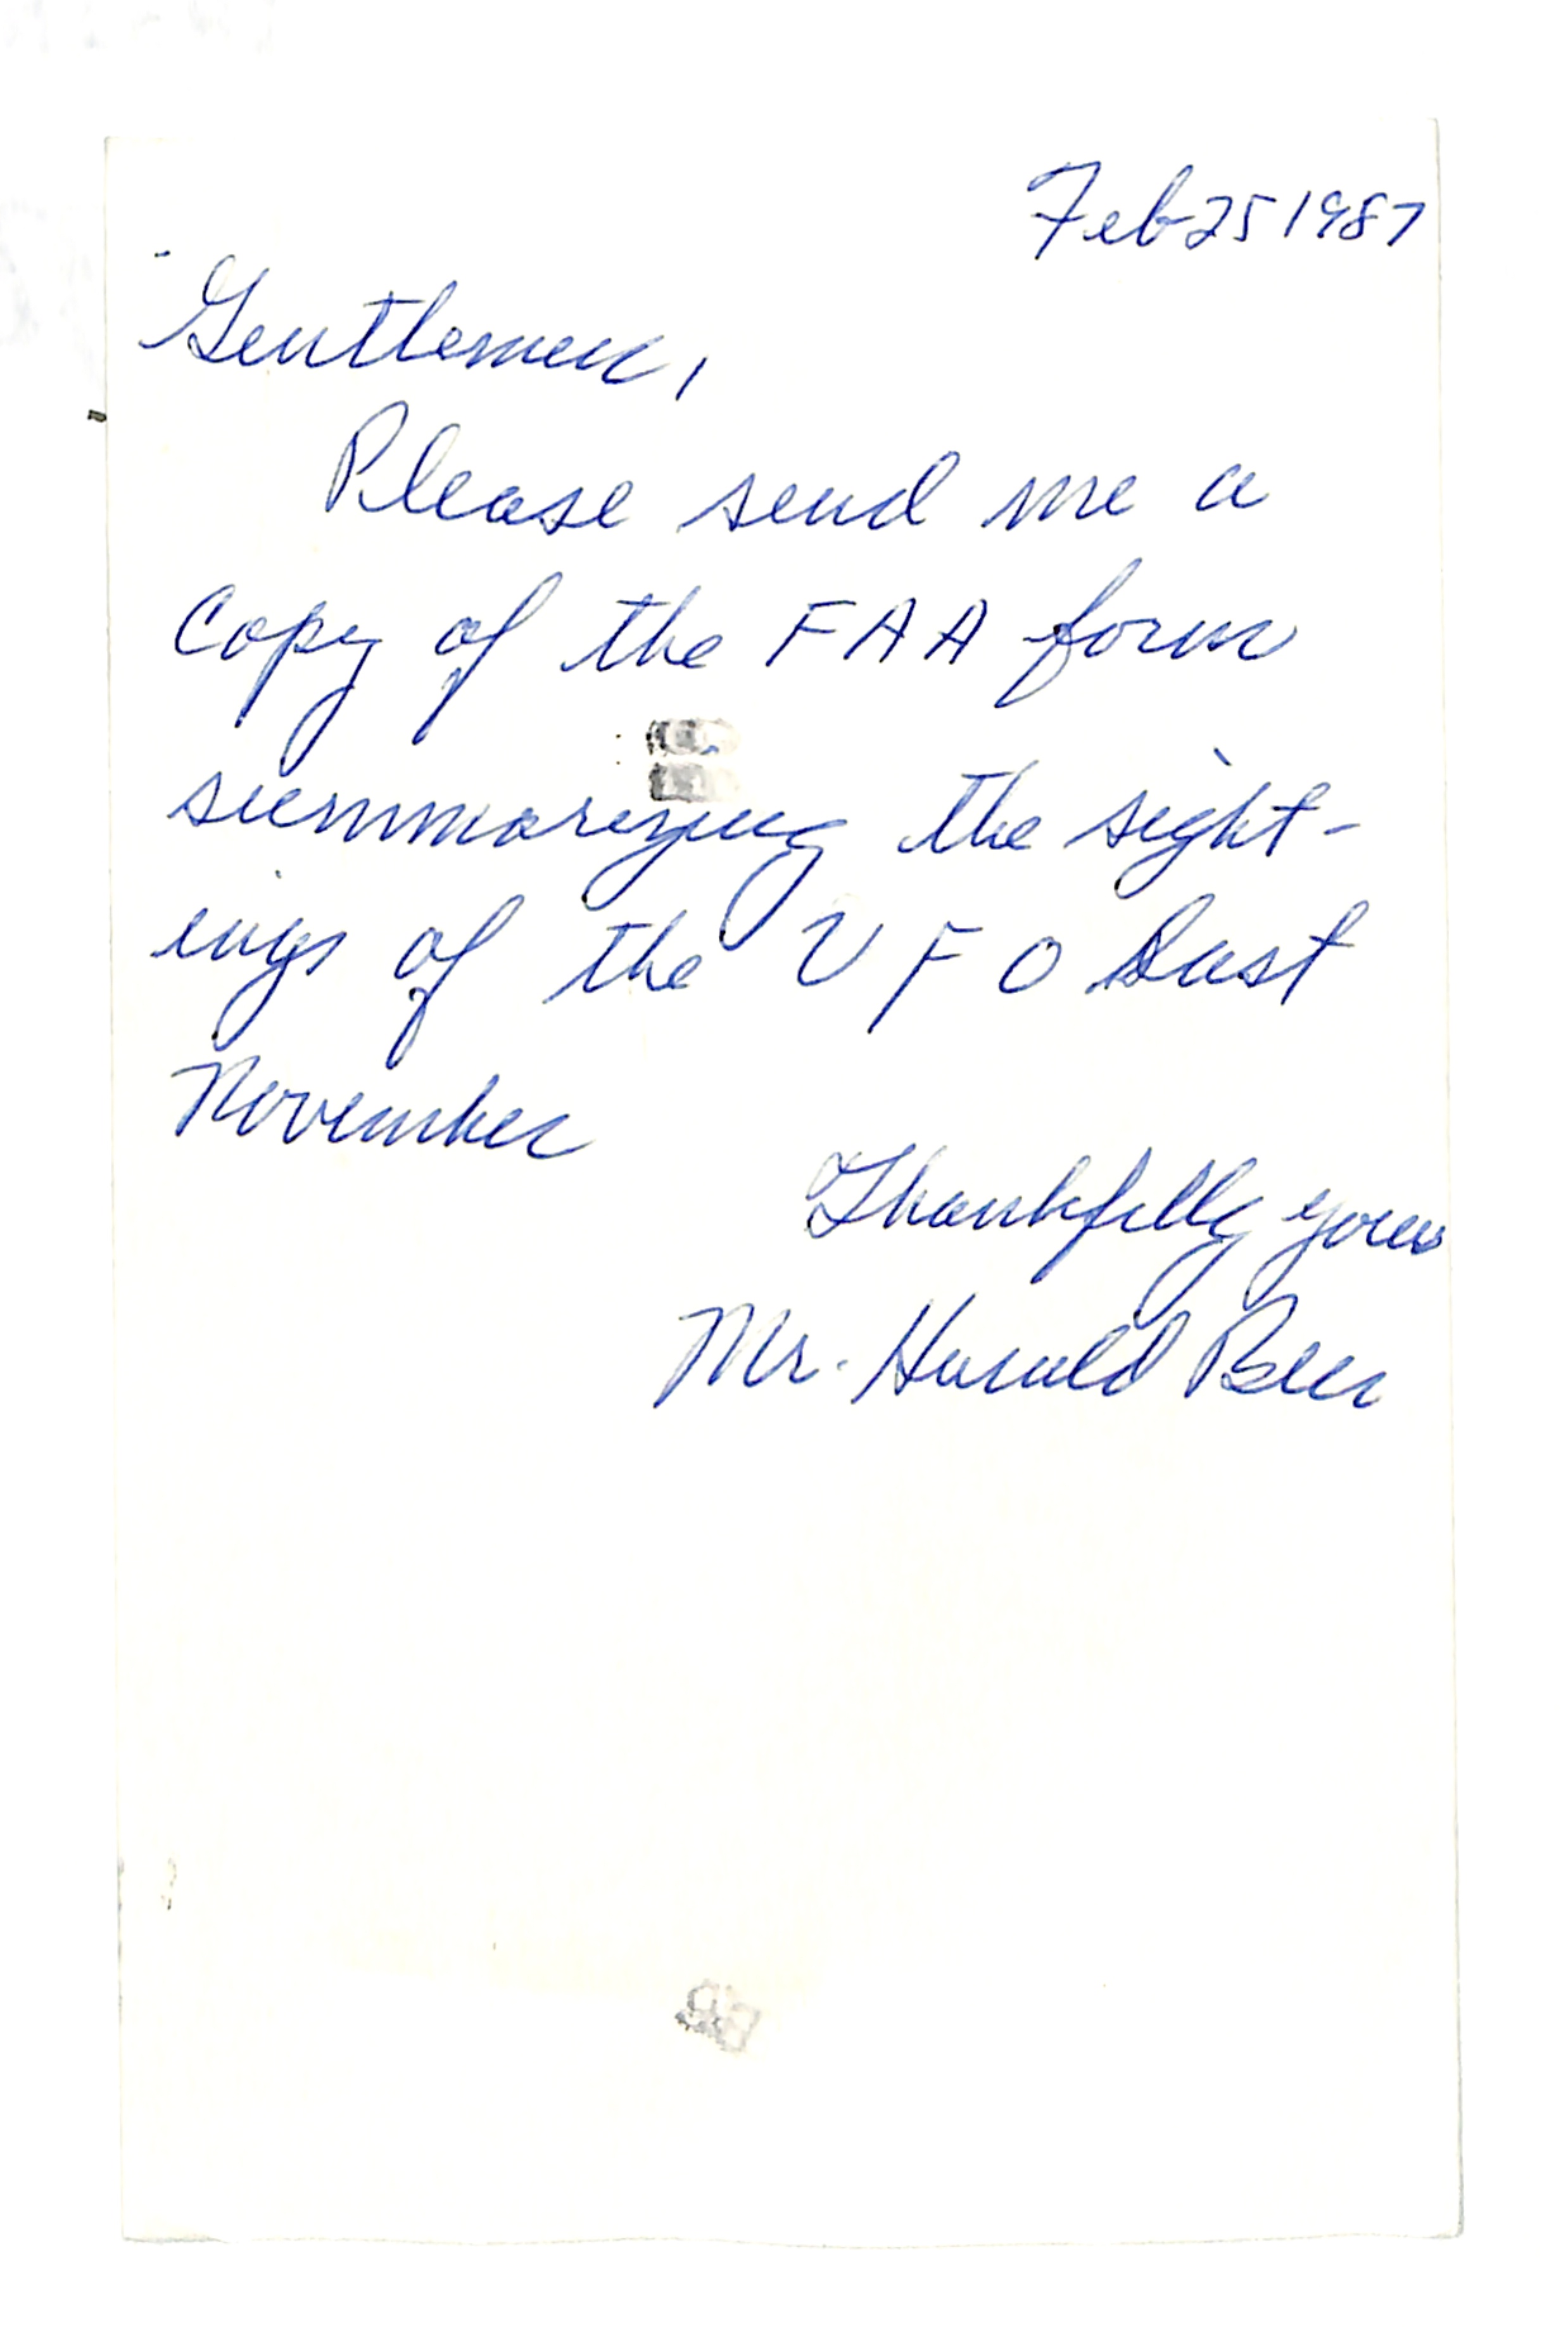 Feb 25 1987
Gentlemen,
Please send me a
copy of the FAA form
summarizing the sight-
ings of the UFO last
November
Thankfully yours
Mr. Harold